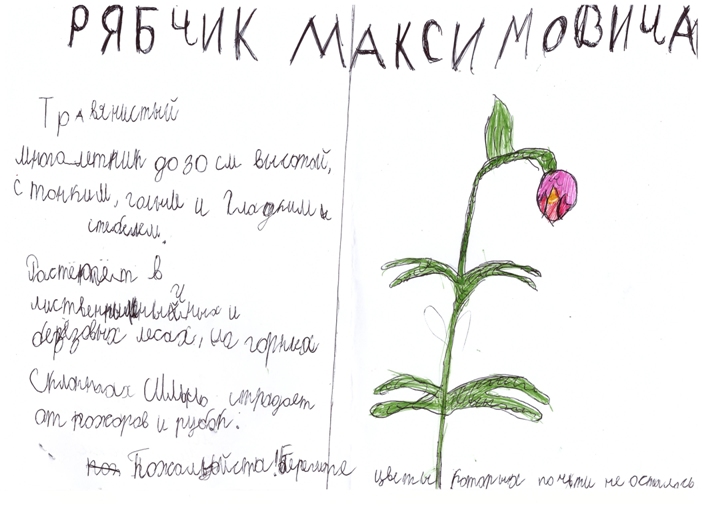 РЯБЧИК МАКСИМОВИЧА
Травянистый
многолетник до 30 см высотой,
с тонким, голым и гладким
стеблем.
Растёт в
и
берёзовых лесах, на горных
склонах Сильно страдает
от пожаров и рубок.
Пожалуйста! Берегите цветы которых почти не осталось